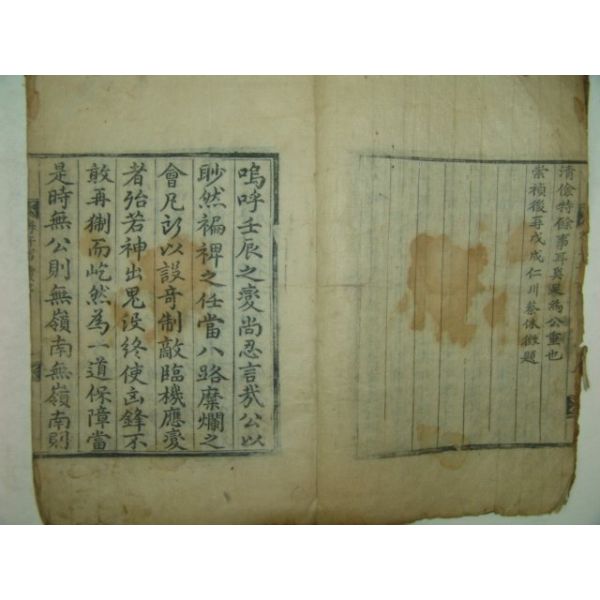 清儉特餘事耳奚足爲公重也
崇禎後再戊戌仁川蔡休徵題
嗚呼壬辰之變尚忍言哉公以
眇然褊裨之任當八路糜爛之
會凡所以設奇制敵臨機應變
者殆若神出鬼没終使凶鋒不
敢再猘而屹然為一道保障當
是時無公則無嶺南無嶺南則